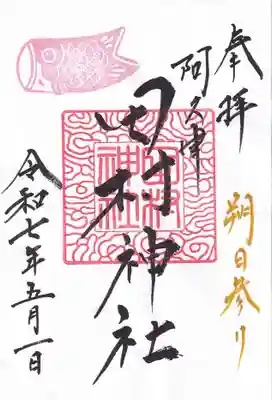 奉拝
朔日参り
阿久津
田村神社
田村神社
令和七年五月一日